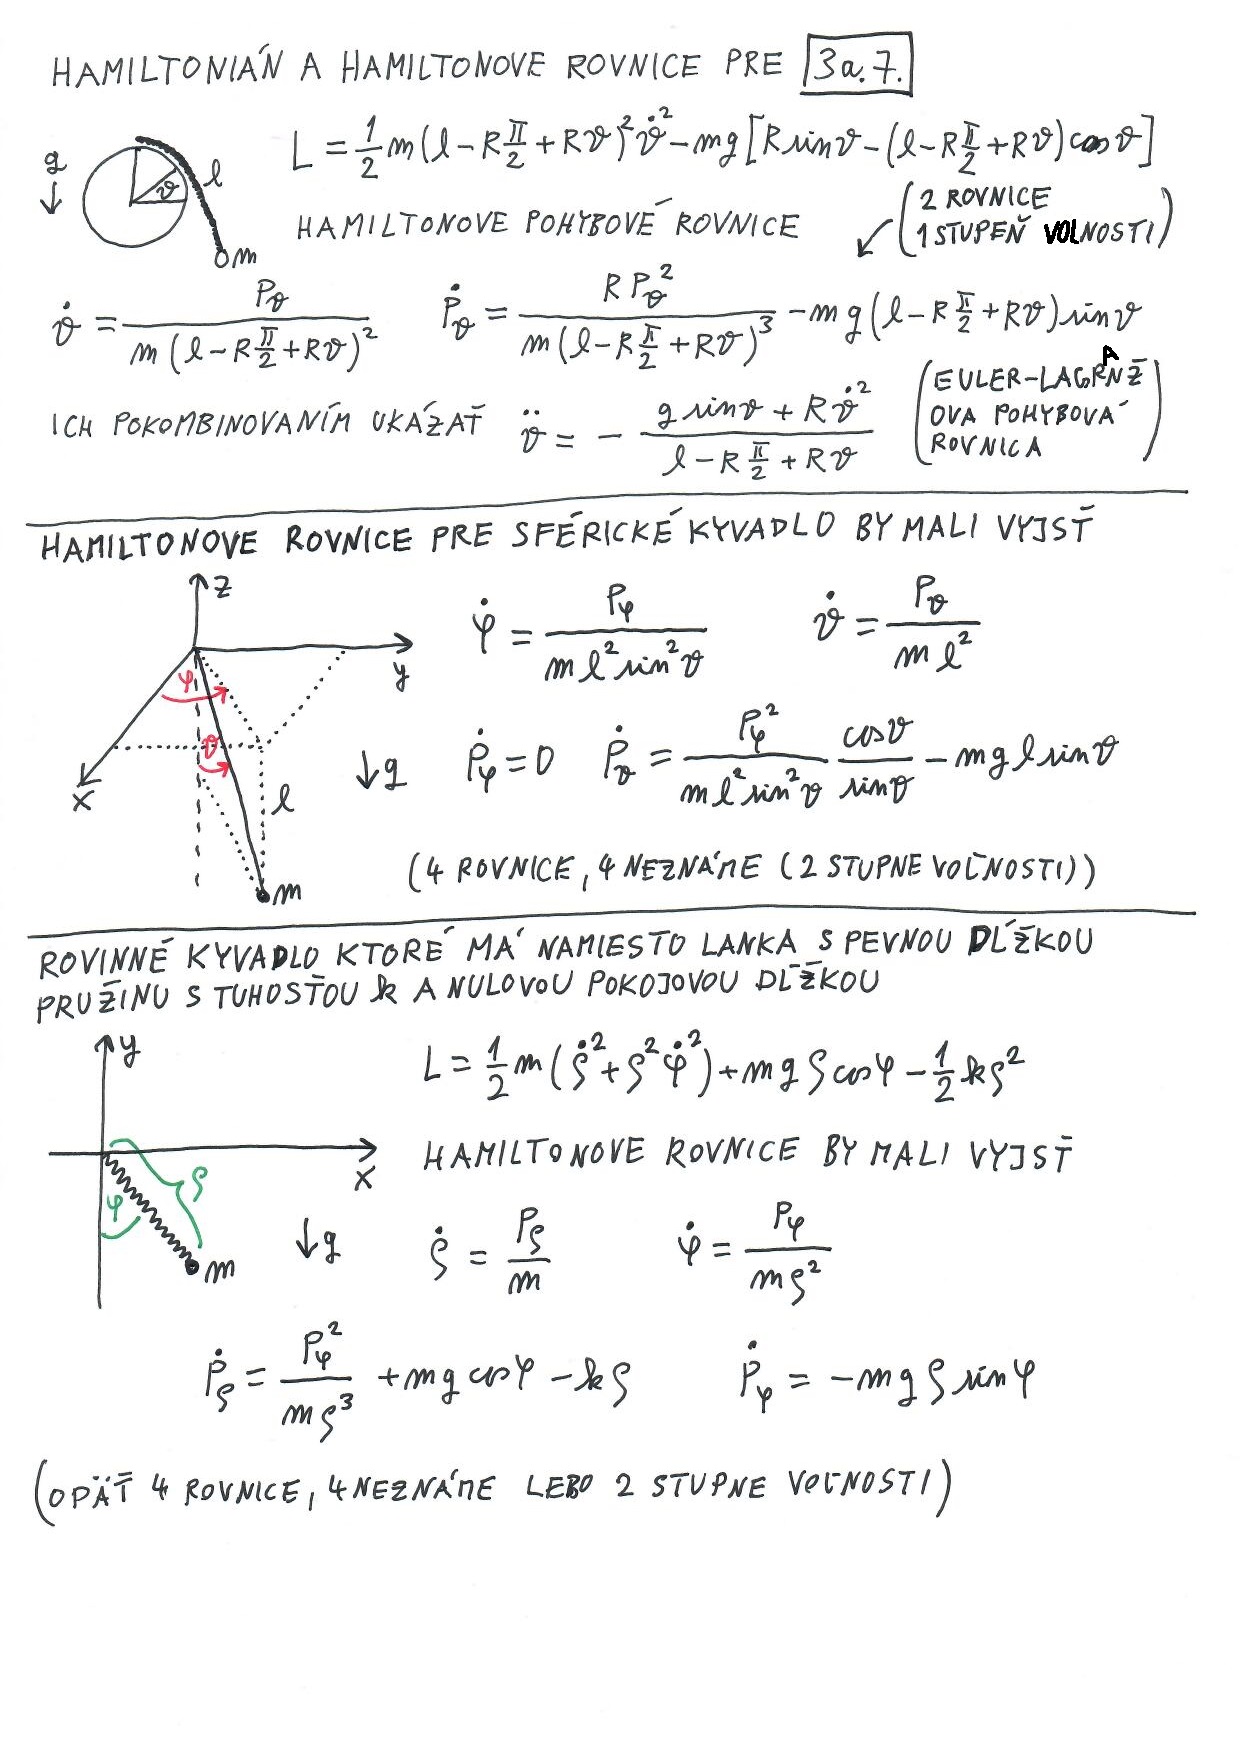 HAMILTONIÁN A HAMILTONOVE ROVNICE PRE 3a.7.
g l ϑ m
L = 1/2 m(l - R π/2 + Rϑ)² ϑ̇² - mg[R sinϑ - (l - R π/2 + Rϑ) cosϑ]
HAMILTONOVE POHYBOVÉ ROVNICE
(2 ROVNICE
1 STUPEŇ VOLNOSTI)
ϑ̇ = Pϑ / m(l - R π/2 + Rϑ)²   Ṗϑ = R Pϑ² / m(l - R π/2 + Rϑ)³ - mg(l - R π/2 + Rϑ) sinϑ
ICH POKOMBINOVANÍM UKÁZAŤ ϑ̈ = - (g sinϑ + Rϑ̇²) / (l - R π/2 + Rϑ)
(EULER-LAGRANŽ
OVA POHYBOVÁ
ROVNICA)
HAMILTONOVE ROVNICE PRE SFÉRICKÉ KYVADLO BY MALI VYJSŤ
z y x φ ϑ l m ↓g
φ̇ = Pφ / ml² sin²ϑ   ϑ̇ = Pϑ / ml²
Ṗφ = 0   Ṗϑ = Pφ² / ml² sin²ϑ cosϑ / sinϑ - mgl sinϑ
(4 ROVNICE, 4 NEZNÁME (2 STUPNE VOĽNOSTI))
ROVINNÉ KYVADLO KTORÉ MÁ NAMIESTO LANKA S PEVNOU DĹŽKOU
PRUŽINU S TUHOSŤOU k A NULOVOU POKOJOVOU DĹŽKOU
y x φ ρ m ↓g
L = 1/2 m(ρ̇² + ρ²φ̇²) + mgρ cosφ - 1/2 kρ²
HAMILTONOVE ROVNICE BY MALI VYJSŤ
ρ̇ = Pρ / m   φ̇ = Pφ / mρ²
Ṗρ = Pφ² / mρ³ + mg cosφ - kρ   Ṗφ = -mgρ sinφ
(OPÄŤ 4 ROVNICE, 4 NEZNÁME LEBO 2 STUPNE VOĽNOSTI)